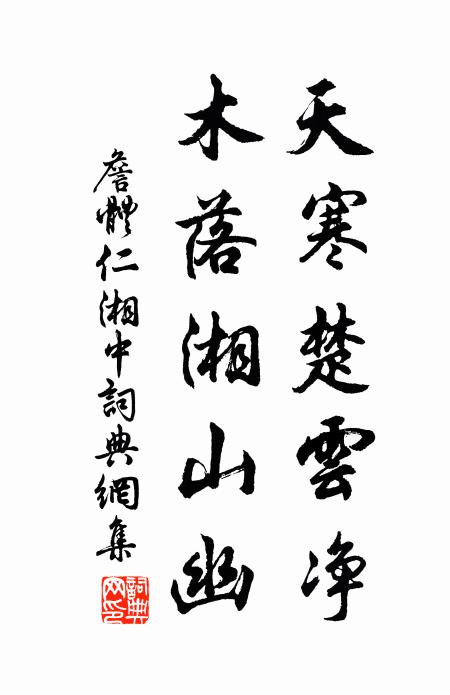 天寒楚雲净
木落湘山幽
詹體仁湘中詞典網集
詞典
网印